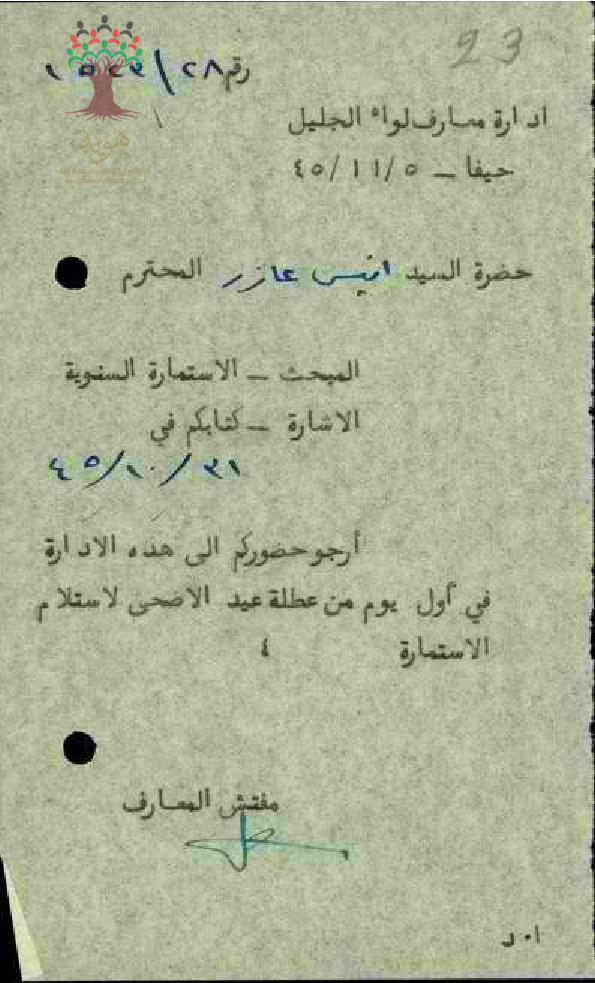 23
رقم ٢٨/
ادارة معارف لواء الجليل
حيفا – ٤٥/١١/٥
حضرة السيد انيس عازر المحترم
المبحث – الاستمارة السنوية
الاشارة – كتابكم في
٤٥/١٠/٣١
أرجو حضوركم الى هذه الادارة
في أول يوم من عطلة عيد الاضحى لاستلام
الاستمارة ٤
مفتش المعارف
ا٠د
هوية